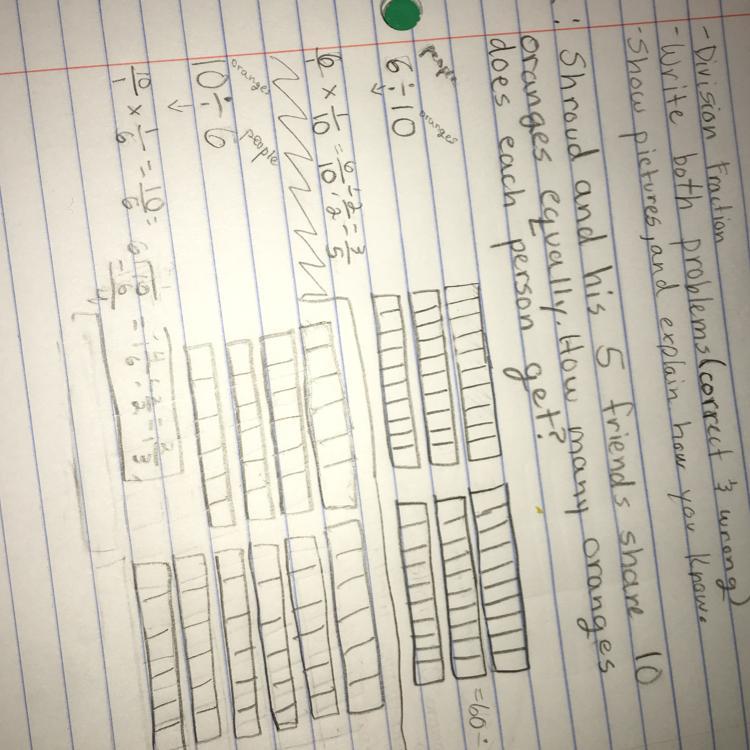 - Division Fraction
- Write both problems (correct & wrong)
- Show pictures, and explain how you know.
: Shroud and his 5 friends share 10
oranges equally. How many oranges
does each person get?
people oranges
6 ÷ 10
6/1 × 1/10 = 6/10 ÷ 2/2 = 3/5
= 60
oranges people
10 ÷ 6
10/1 × 1/6 = 10/6 =
6 10
- 6
4
= 1 4/6 ÷ 2/2 = 1 2/3